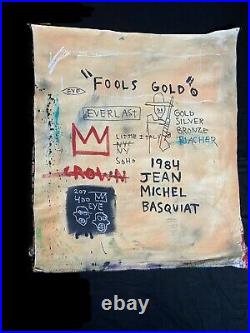 "FOOLS GOLD"
EYE
EVERLAST
GOLD
SILVER
BRONZE
LITTLE ITALY
SOHO
CROWN
1984
JEAN
MICHEL
BASQUIAT
207
400
EYE